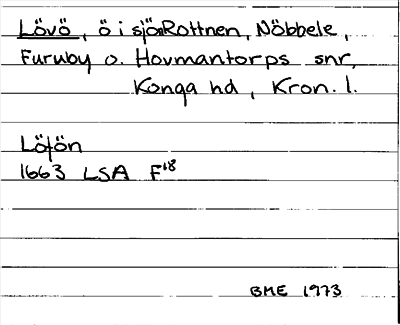 Lövö, ö i sjön Rottnen, Nöbbele,
Furuby o. Hovmantorps snr,
Konga hd, Kron. l.
Löfön
1663 LSA F18
BME 1973